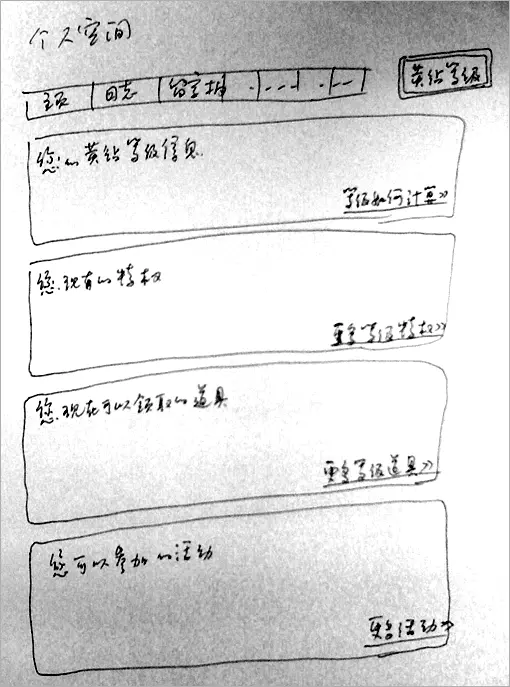 个人空间
主页 日志 留言板 ·--- ·--
黄钻等级
您的黄钻等级信息
等级如何计算»
您现有的特权
更多等级特权»
您现在可以领取的道具
更多等级道具»
您可以参加的活动
更多活动»